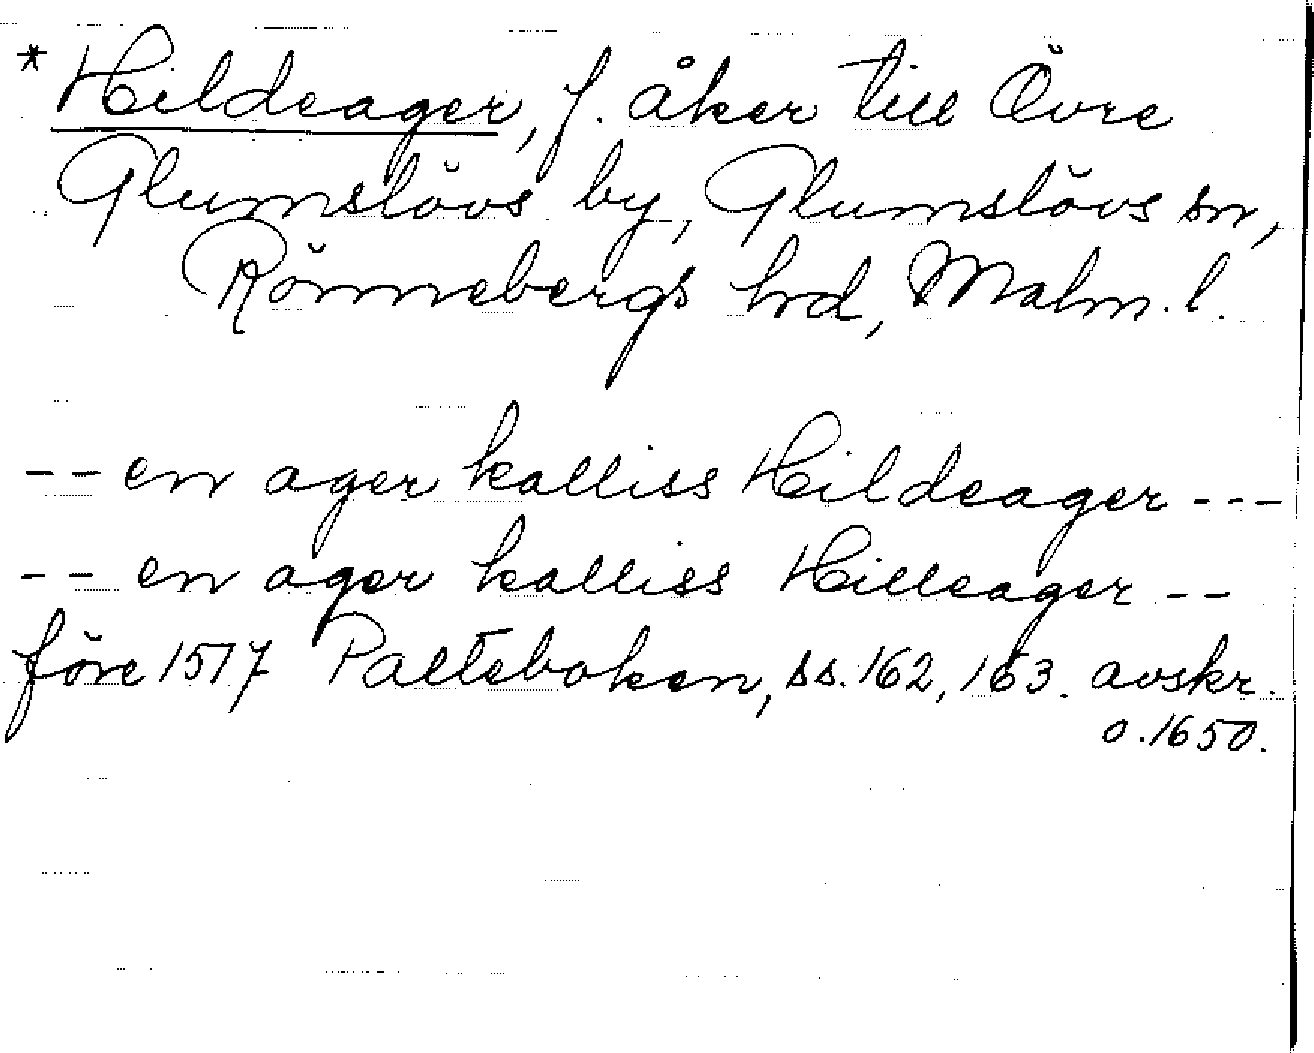 * Hildeager, f. åker till Övre
Glumslövs by, Glumslövs sn,
Rönnebergs hrd, Malm. l.
-- en ager kalliss Hildeager ---
-- en ager kalliss Hilleager --
före 1517 Palteboken, ss. 162, 163. avskr.
o. 1650.